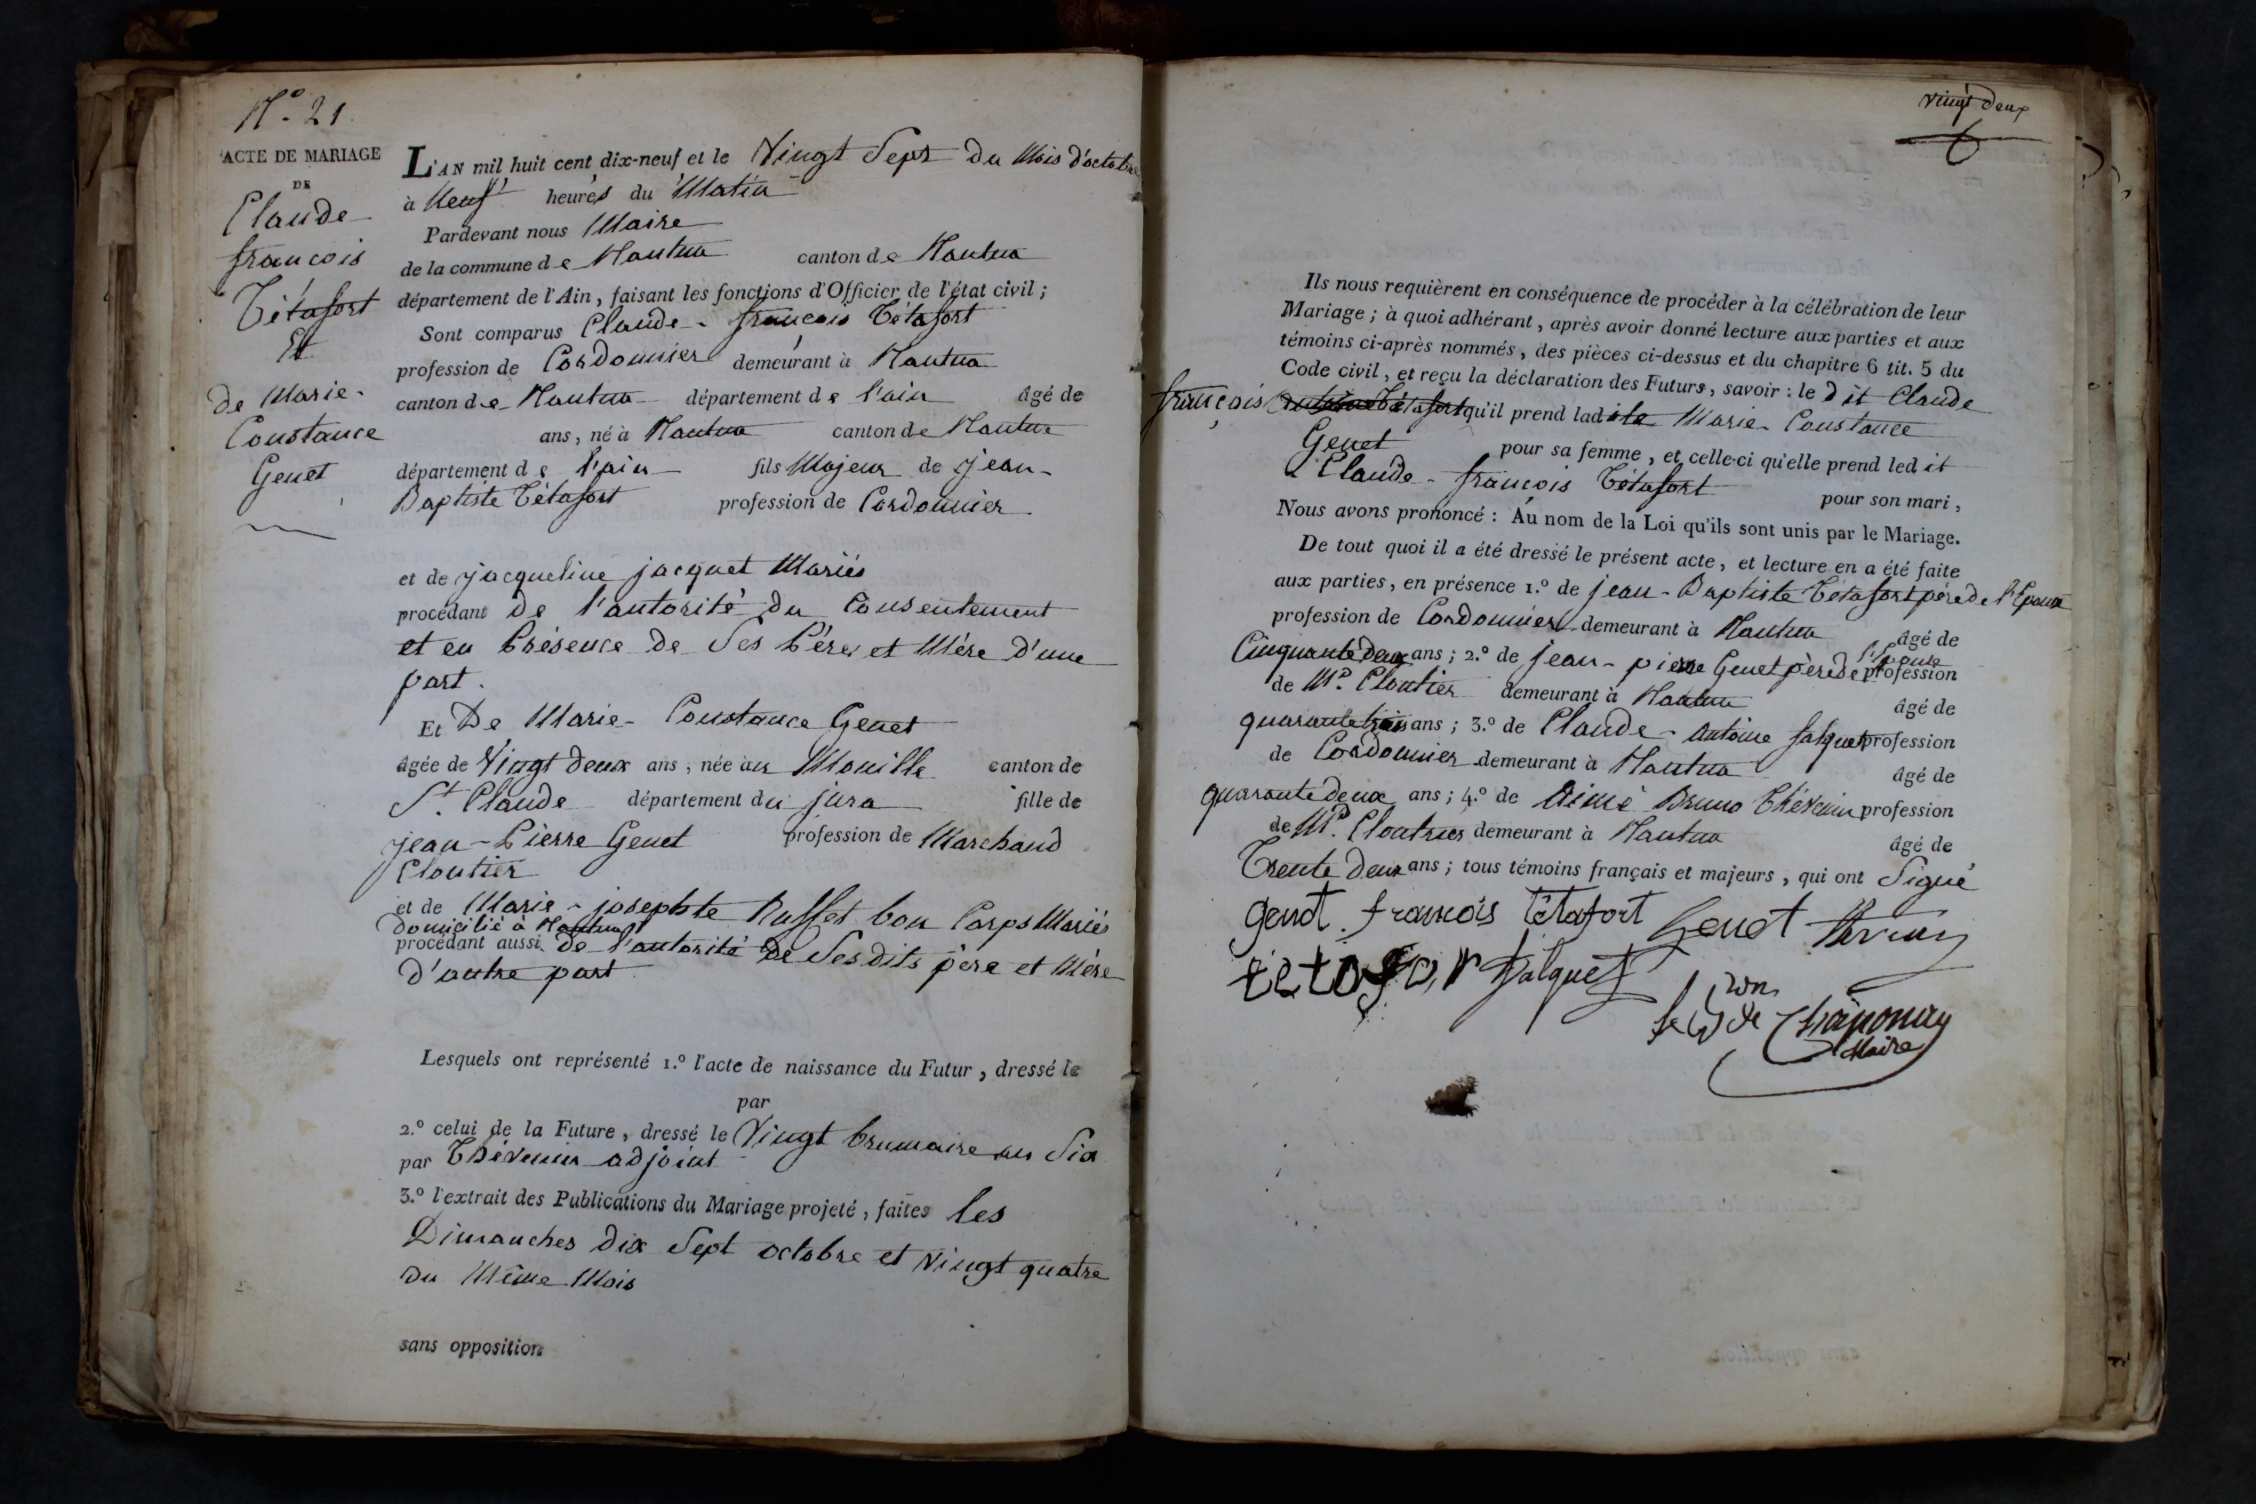 N.o 21
ACTE DE MARIAGE
DE
Claude
françois
Tétafort
Et
de Marie-
Constance
Genet
L'AN mil huit cent dix-neuf et le Vingt Sept du Mois d'octobre
à Neuf heures du Matin
Pardevant nous Maire
de la commune de Nantua canton de Nantua
département de l'Ain, faisant les fonctions d'Officier de l'état civil ;
Sont comparus Claude - françois Tétafort
profession de Cordonnier demeurant à Nantua
canton de Nantua département de l'ain âgé de
ans, né à Nantua canton de Nantua
département de l'ain fils Majeur de jean-
Baptiste Tétafort profession de Cordonnier
et de jacqueline jacquet Mariés
procédant de l'autorité du Consentement
et en Présence de Ses Père et Mère d'une
part.
Et De Marie - Constance Genet
âgée de Vingt deux ans, née au Mouille canton de
St. Claude département du jura fille de
jean - Pierre Genet profession de Marchand
Cloutier
et de Marie - josephte Buffet bon Corps Mariés
domicilié à Nantua
procédant aussi de l'autorité de Sesdits père et Mère
d'autre part
Lesquels ont représenté 1.º l'acte de naissance du Futur, dressé le
par
2.º celui de la Future, dressé le Vingt brumaire an Six
par Thévenin adjoint
3.º l'extrait des Publications du Mariage projeté, faites les
Dimanches dix Sept octobre et vingt quatre
du Même Mois
sans opposition
vingt deux
Ils nous requièrent en conséquence de procéder à la célébration de leur
Mariage ; à quoi adhérant, après avoir donné lecture aux parties et aux
témoins ci-après nommés, des pièces ci-dessus et du chapitre 6 tit. 5 du
Code civil, et reçu la déclaration des Futurs, savoir : le dit Claude
françois Tétafort qu'il prend ladite Marie - Constance
Genet pour sa femme, et celle-ci qu'elle prend ledit
Claude - françois Tétafort pour son mari,
Nous avons prononcé : Au nom de la Loi qu'ils sont unis par le Mariage.
De tout quoi il a été dressé le présent acte, et lecture en a été faite
aux parties, en présence 1.º de jean - Baptiste Tétafort père de l'Epoux
profession de Cordonnier demeurant à Nantua âgé de
Cinquante deux ans ; 2.º de jean - pierre Genet père de l'Epouse profession
de Md. Cloutier demeurant à Nantua âgé de
quarante trois ans ; 3.º de Claude - antoine jalquet profession
de Cordonnier demeurant à Nantua âgé de
quarante deux ans ; 4.º de Aimé Bruno Thévenin profession
de Md. Cloutier demeurant à Nantua âgé de
Trente deux ans ; tous témoins français et majeurs, qui ont Signé
genet. francois tétafort Genet
tétafort Jalquet
de Chaponay
Maire